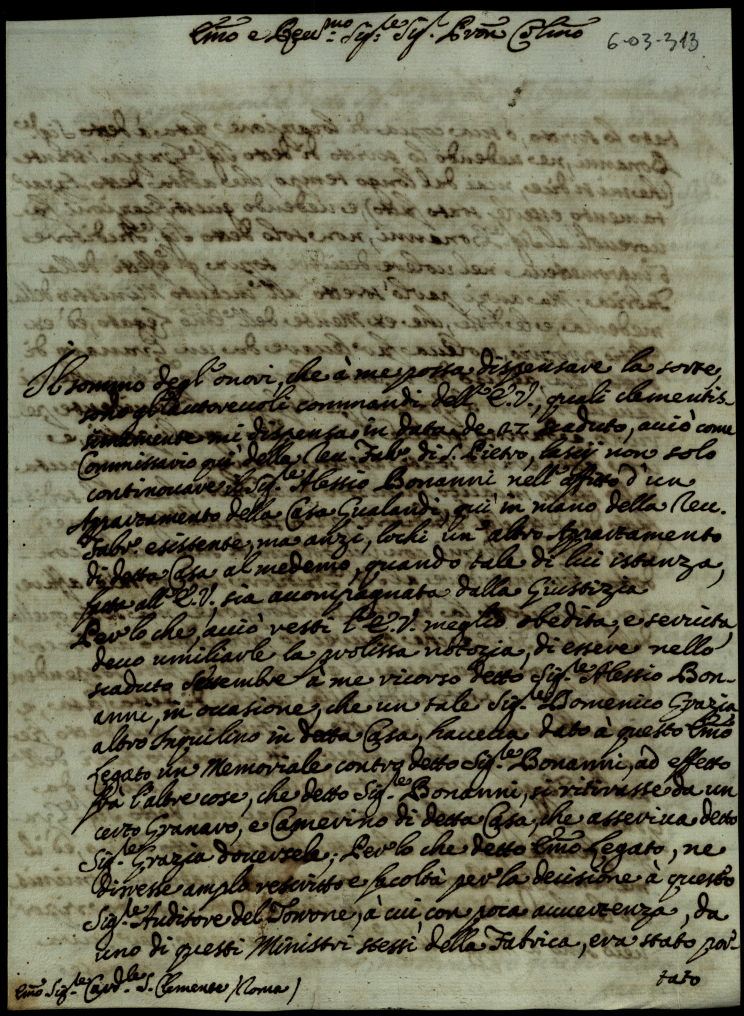 Emo e Reu.mo Sig.re Sig.r Pron Colmo
6-03-313
Il sommo degl'onori, che à me possa dispensare la sorte,
sono gl'autoreuoli commandi dell'E.V., quali clementis-
simamente mi dispensa in data de 22 scaduto, acciò come
Commissario qui della Reu. Fab.a di S. Pietro, lasij non solo
continouare il Sig.re Alessio Bonanni nell'affitto d'un
Appartamento della Casa Gualandi, qui in mano della Reu.
Fabr.a esistente, ma anzi, lochi un'altro Appartamento
di detta Casa al medemo, quando tale di lui istanza,
fatta all'E.V., sia accompagnata dalla Giustizia
Per lo che, acciò resti l'E.V. meglio obedita, e seruita,
deuo umiliarle la prolissa notizia, di essere nello
scaduto Settembre à me ricorso detto Sig.re Alessio Bon-
anni, in occasione, che un tale Sig.re Domenico Grazia
altro Inquilino in detta Casa, haueua dato à questo Emo
Legato un Memoriale contro detto Sig.re Bonanni, ad effetto
frà l'altre cose, che detto Sig.re Bonanni, si ritirasse da un
certo Granaro, e Camerino di detta Casa, che asseriua detto
Sig.re Grazia douersele; Per lo che detto Emo Legato, ne
diresse amplo rescritto e facoltà per la decisione à questo
Sig.re Auditore del Torrone, à cui con poca auuertenza, da
uno di questi Ministri stessi della Fabrica, era stato por-
tato
Emo Sig.re Card.le S. Clemente (Roma)